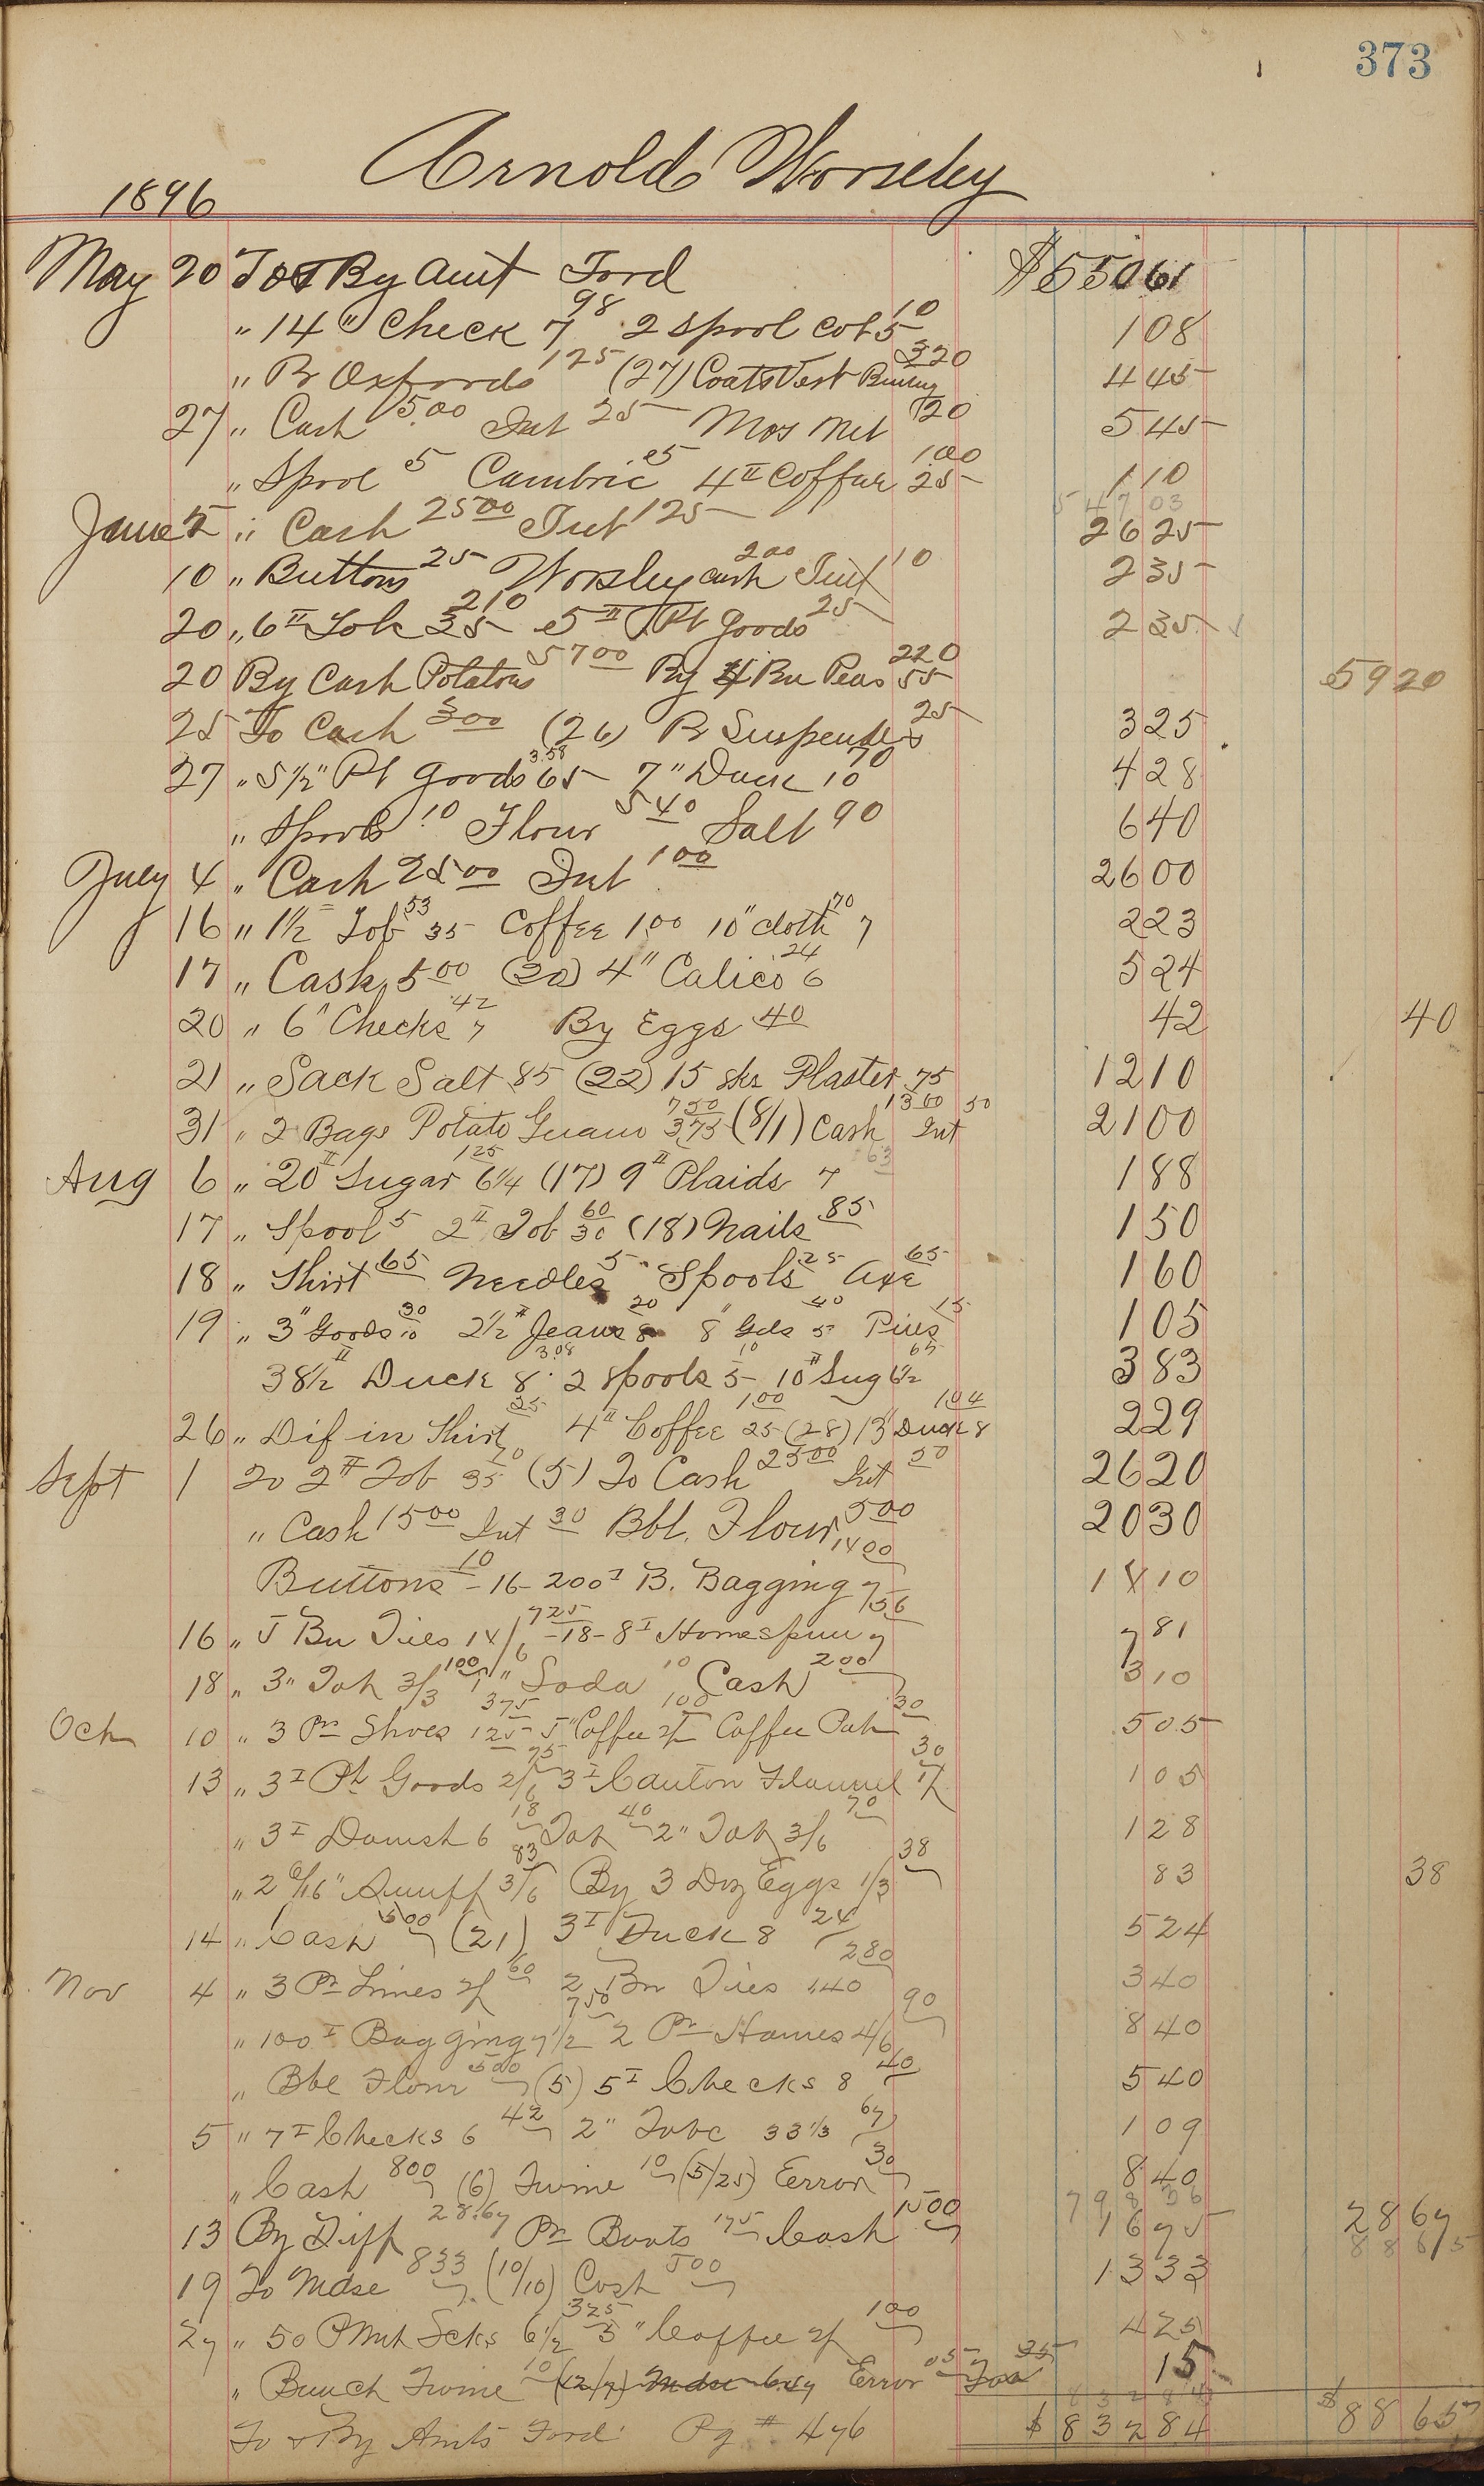 373
Arnold Worseley
1896
May 20 To & By Amt Ford $550 61
" 14 " Check 7 98 2 Spool Cot 5 10 1 08
" Pr Oxfords 1 25 (27) Coat & Vest 3 20 4 45
27 " Cash 5.00 Int 25 Mos Net 20 5 45
" Spool 5 Cambric 5 4 II Coffee 25 1.00 1 10
547 03
June 5 " Cash 25 00 Int 1 25 26 25
10 " Buttons 25 Worsley Cash 2 00 Int 10 2 35
20 " 6 II Tob 35 2 10 5 II Pt Goods 25 2 35
20 By Cash Potatoes 57 00 By 4 Bu Peas 55 2 20 59 20
25 To Cash 3 00 (26) Pr Suspenders 25 3 25
27 " 5 1/2 " Pt Goods 65 3.58 7 " Duck 10 70 4 28
" Spools 10 Flour 5 40 Salt 90 6 40
July 4 " Cash 25 00 Int 1 00 26 00
16 " 1 1/2 Tob 35 53 Coffee 1 00 10 " Cloth 7 70 2 23
17 " Cash 5 00 (20) 4 " Calico 6 24 5 24
20 " 6 " Checks 7 42 By Eggs 40 42 40
21 " Sack Salt 85 (22) 15 sks Plaster 75 12 10
31 " 2 Bags Potato Guano 3 75 7 50 (8/1) Cash 13 00 Int 50 21 00
Aug 6 " 20 II Sugar 6 1/4 1 25 (17) 9 II Plaids 7 63 1 88
17 " Spool 5 2 II Tob 30 60 (18) Nails 85 1 50
18 " Shirt 65 Needles 5 Spools 25 Axe 65 1 60
19 " 3 " Goods 10 30 2 1/2 II Jeans 8 20 8 " Gds 5 40 Pins 15 1 05
38 1/2 II Duck 8 3.08 2 Spools 5 10 10 II Sug 6 1/2 65 3 83
26 " Dif in Shirt 25 4 II Coffee 25 1 00 (28) 13 " Duck 8 1 04 2 29
Sept 1 To 2 II Tob 35 70 (5) To Cash 25 00 Int 50 26 20
" Cash 15 00 Int 30 Bbl. Flour 5 00 20 30
Buttons 10 - 16 - 200 I B. Bagging 7 14 00 14 10
16 " 5 Bu Ties 14/6 7 25 - 18 - 8 I Homespun 7 56 7 81
18 " 3 " Tob 3/3 1 00 1 " Soda 10 Cash 2 00 3 10
Oct 10 " 3 Pr Shoes 1 25 3 75 5 " Coffee 2/ 1 00 Coffee Pot 30 5 05
13 " 3 I Pt Goods 2/6 75 3 I Canton Flannel 1/ 30 1 05
" 3 I Domest 6 18 Tob 40 2 " Tob 3/6 70 1 28
" 2 6/16 " Snuff 3/6 83 By 3 Doz Eggs 1/3 38 83 38
14 " Cash 5 00 (21) 3 I Duck 8 24 5 24
Nov 4 " 3 Pr Lines 2/ 60 2 Bu Ties 1.40 2 80 3 40
" 100 I Bagging 7 1/2 7 50 2 Pr Hames 4/6 90 8 40
" Bbl Flour 5 00 (5) 5 I Checks 8 40 5 40
5 " 7 I Checks 6 42 2 " Tobc 33 1/3 67 1 09
" Cash 8 00 (6) Twine 10 (5/25) Error 30 8 40
798 36
13 By Diff 28.67 Pr Boots 1 75 Cash 15 00 16 75 28 67
88 65
19 To Mdse 8 33 (10/10) Cash 5 00 13 33
27 " 50 Scks 6 1/2 3 25 5 " Coffee 2/ 1 00 4 25
" Bunch Twine 10 (12/7) Mdse 6.47 Error 05 Tax 35 15
832 84
To & By Amts Ford Pg # 476 $ 832 84 $ 88 65